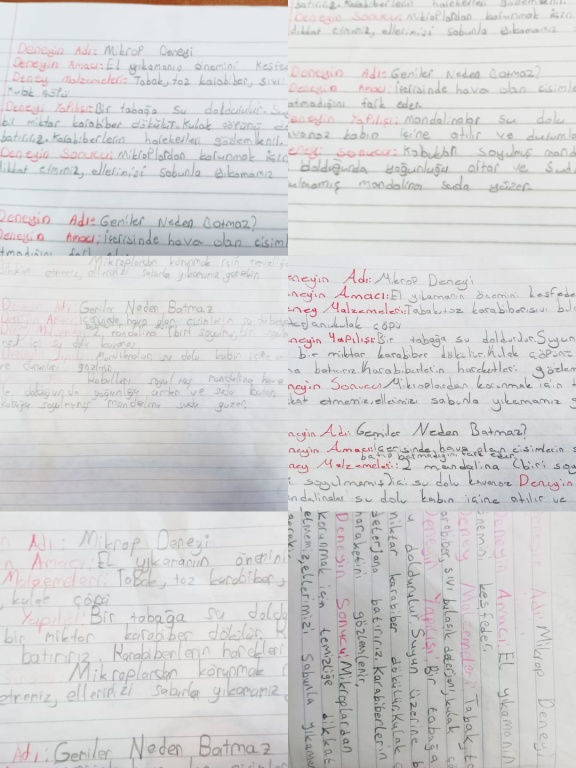 Deneyin Adı: Mikrop Deneyi
Deneyin Amacı: El yıkamanın önemini keşfe
Deney Malzemeleri: Tabak, toz karabiber, sıvı
kulak çöpü
Deneyi Yapılışı: Bir tabağa su doldurulur. Su
bir miktar karabiber dökülür. Kulak çöpünü de
batırılız. Karabiberlerin hareketleri gözlemlenir.
Deneyin Sonucu: Mikroplardan korunmak için
dikkat etmeniz, ellerimizi sabunla yıkamamız
Deneyin Adı: Gemiler Neden Batmaz?
Deneyin Amacı: İçerisinde hava olan cisim
Deneyin Sonucu: Mikroplardan korunmak iç
dikkat etmeniz, ellerimizi sabunla yıkamamız
Deneyin Adı: Gemiler Neden Batmaz?
Deneyin Amacı: İçerisinde hava olan cisimle
atmadığını fark eder.
eneyin Yapılışı: mandalinalar su dolu
avanoz kabın içine atılır ve durumla
eneyi Sonucu: Kabukları soyulmuş mand
doldağunda yoğunluğu artar ve suda
ulmamış mandalina suda yüzer.
Gemiler Neden Batmaz
mandalina (biri soyulmu
su dolu kabın içine
soyulmuş mandalina
soyulmamış mandalina suda yüzer.
neyin Adı: Mikrop Deneyi
neyin Amacı: El yıkamanın önemini keşfede
ney Malzemeleri: Tabak, toz karabiber, sıvı bul
kulak çöpü
neyin Yapılışı: Bir tabağa su doldurdur. Suyun
bir miktar karabiber dökülür. Kulak çöpünü
a batırız. Karabiberlerin hareketleri gözlem
neyin Sonucu: Mikroplardan korunmak için t
kat etmeniz, ellerimizi sabunla yıkamamız g
neyin Adı: Gemiler Neden Batmaz?
neyin Amacı: İçerisinde hava olan cisimlerin s
batıp batmadığını fark eder.
ney Malzemeleri: 2 mandalina (biri soy
i soyulmamış) içi su dolu kavanoz Deneyin
andalinalar su dolu kabın içine atılır ve
n Adı: Mikrop Deneyi
n Amacı: El yıkamanın önemini
Malzemeleri: Tabak, toz karabiber,
, kulak çöpü
Yapılı: Bir tabağa su doldu
bir miktar karabiber dökülür. K
batırınız. Karabiberlerin hareketleri
Mikroplardan korunmak i
etmeniz, ellerimizi sabunla yıkamamız
Adı: Gemiler Neden Batmaz
Adı: Mikrop Deneyi
Deney Amacı: El yıkamanın
önemini keşfeder.
Deney Malzemeleri: Tabak, to
karabiber, sıvı bulaşık deterjanı, kulak ç
Deneyin Yapılışı: Bir tabağa
u doldurulur. Suyun üzerine b
miktar karabiber dökülür. Kulak ç
deterjana batırırız. Karabiberlerin
hareketini gözlemlenir.
Deneyin Sonucu: Mikroplardan
korunmak için temizliğe dikkat
etmemiz, ellerimizi sabunla yıkamam